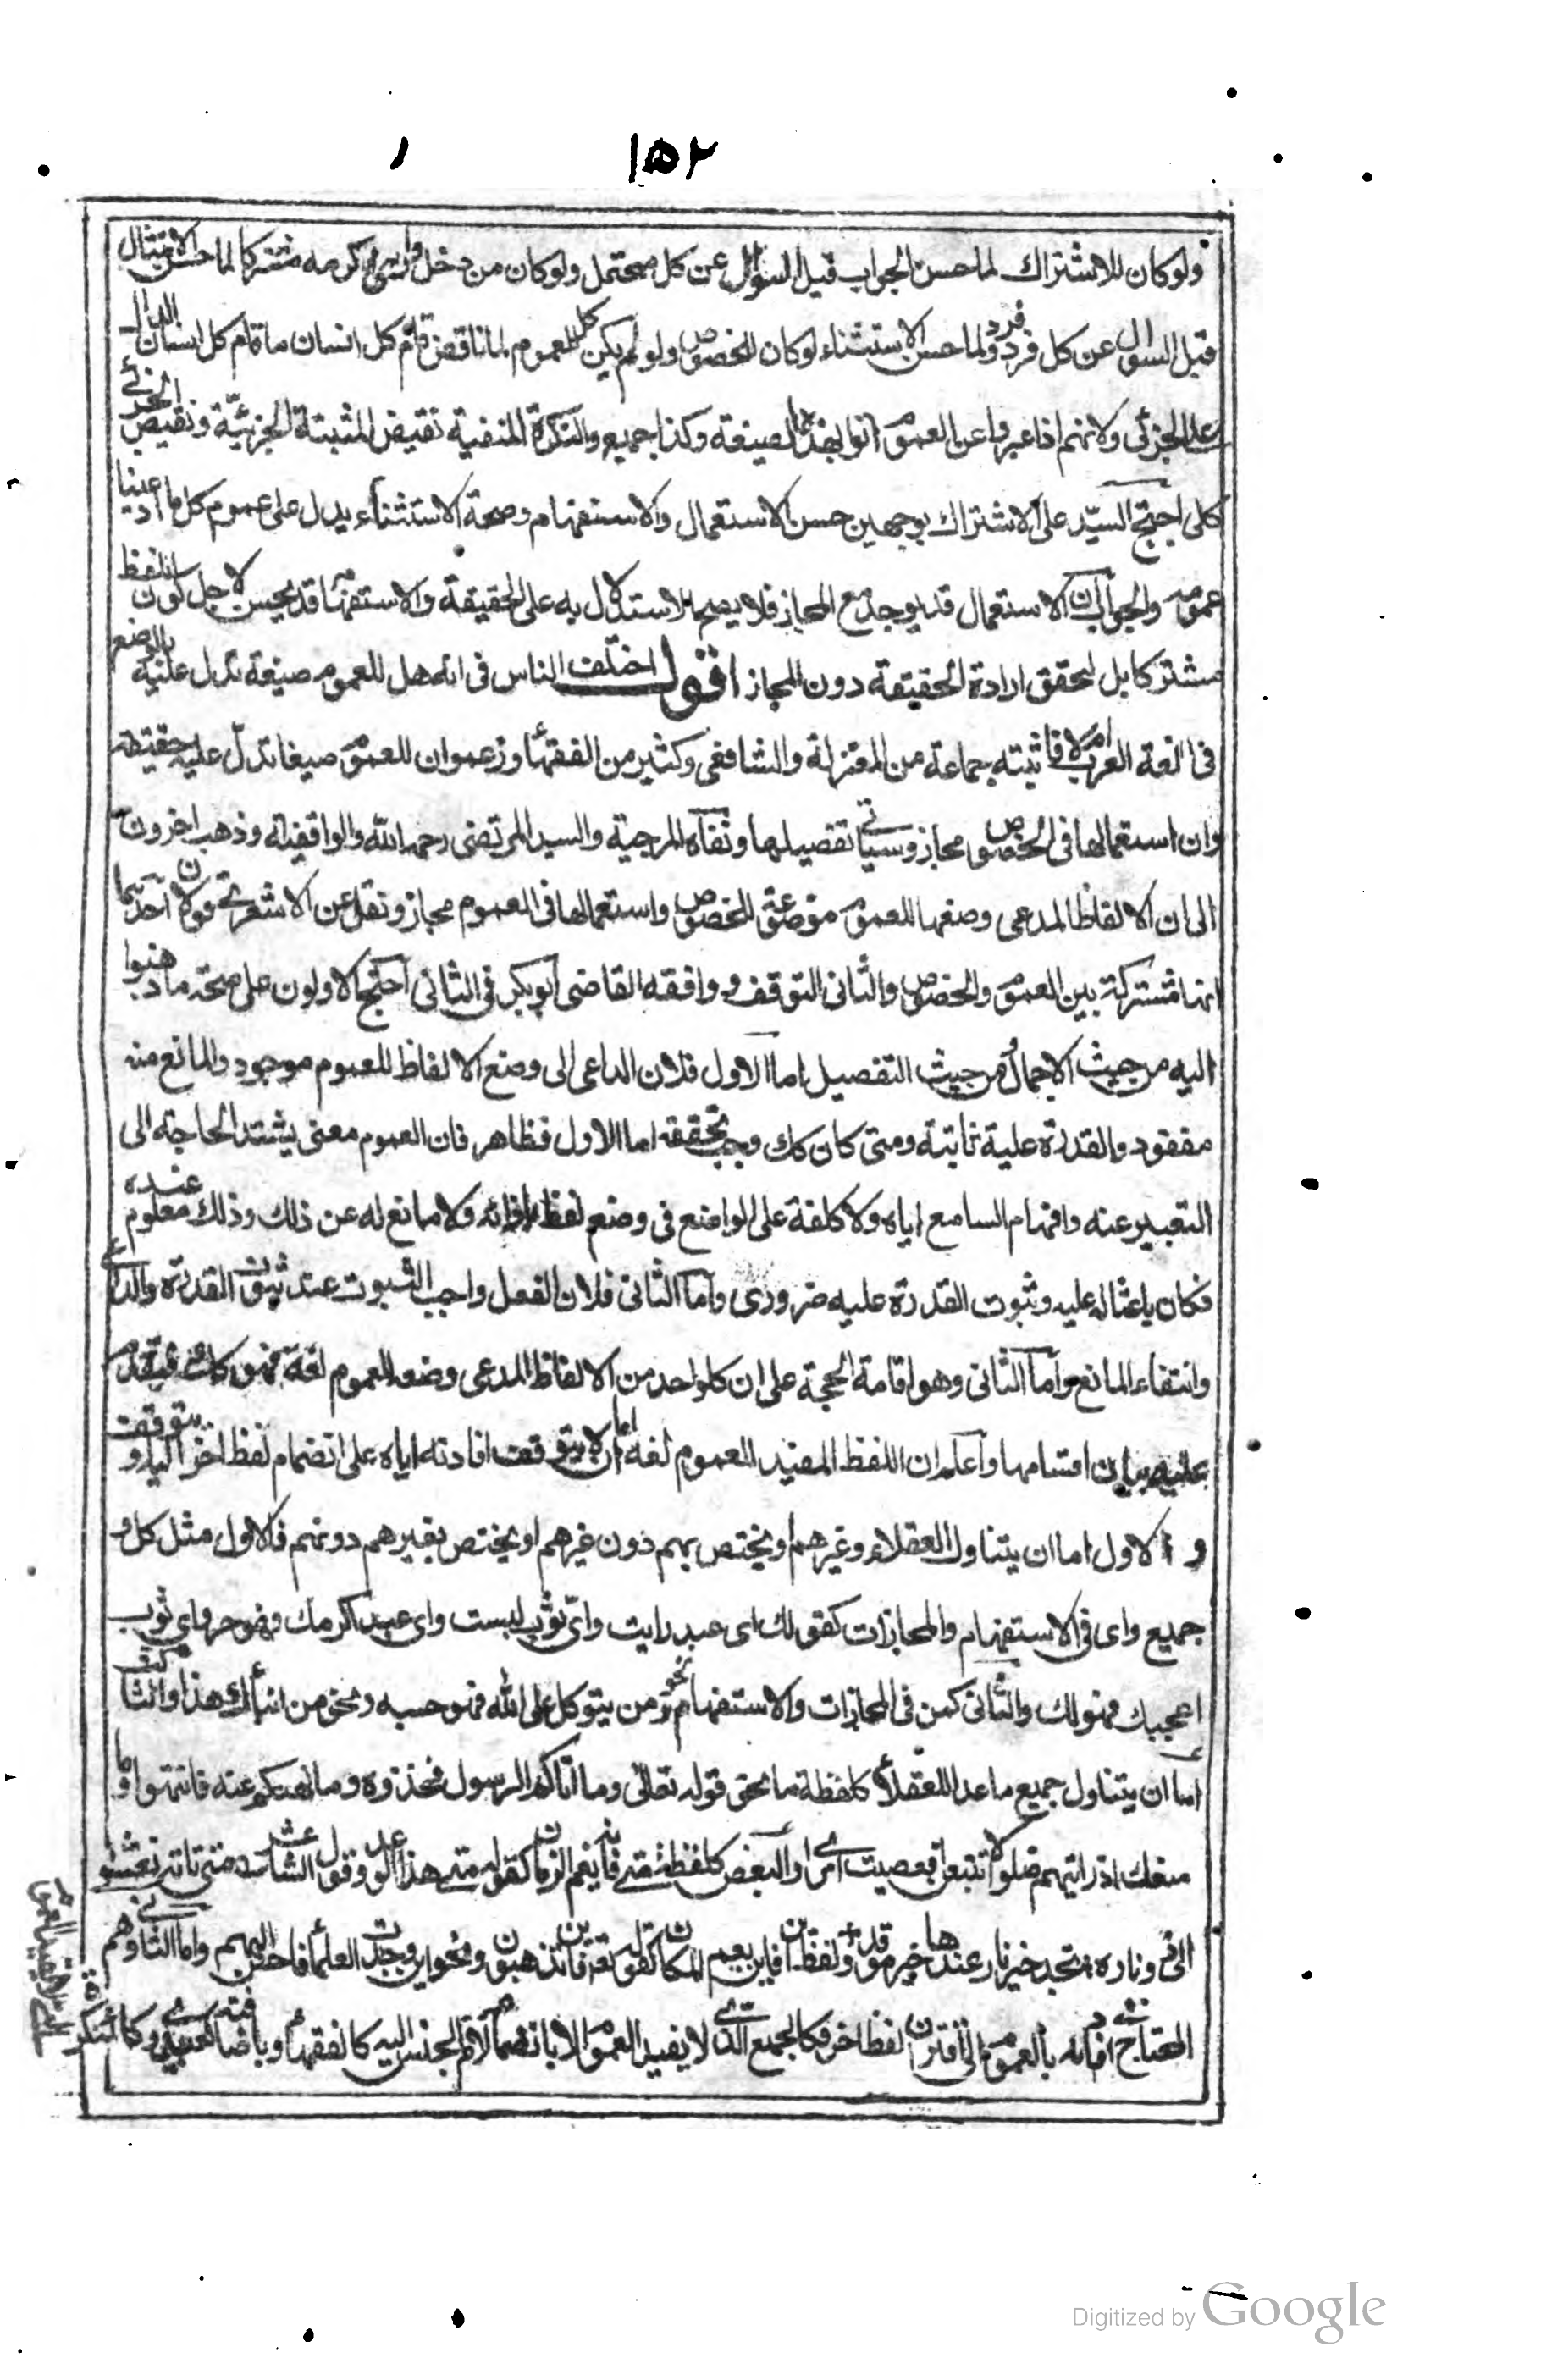 ١٥٢
ولو كان للاشتراك لما حسن الجواب قبل السؤال عن كل محتمل ولو كان من دخل داري اكرمه مشتركا لما حسن الامتثال
قبل السوال عن كل فرد فرد ولما حسن الاستثناء لو كان للخصوص ولو لم يكن كل للعموم لما ناقض قام كل انسان ما قام كل انسان الدال
على الجزئى ولانهم اذا عبروا عن العموم اتوا بهذه الصيغة وكذا جميع والنكرة المنفية نقيض المثبتة الجزئيّة ونقيض الجزئى
كلى احتج السيّد على الاشتراك بوجهين حسن الاستعمال والاستفهام وصحة الاستثناء يدل على عموم كل ما ادعينا
عمومه والجواب ان الاستعمال قد يوجد مع المجاز فلا يصح الاستدلال به على الحقيقة والاستفهام قد يحسن لا لاجل كون اللفظ
مشتركا بل لتحقق ارادة الحقيقة دون المجاز اقول اختلف الناس فى انه هل للعموم صيغة تدل عليه بالوضع
فى لغة العرب ام لا فاثبته جماعة من المعتزلة والشافعى وكثير من الفقهاء وزعموا ان للعموم صيغا تدلّ عليه حقيقة
وان استعمالها فى الخصوص مجاز وسياتى تفصيلها ونفاه المرجية والسيد المرتضى رحمه الله والواقفية وذهب اخرون
الى ان الالفاظ المدعى وضعها للعموم موضوعة للخصوص واستعمالها فى العموم مجاز ونقل عن الاشعرى قولان احدهما
انها مشتركة بين العموم والخصوص والثانى التوقف ووافقه القاضى ابو بكر فى الثانى احتج الاولون على صحة ما ذهبوا
اليه من حيث الاجمال ومن حيث التفصيل اما الاول فلان الداعى الى وضع الالفاظ للعموم موجود والمانع منه
مفقود والقدرة عليه ثابتة ومتى كان كك وجب تحققه اما الاول فظاهر فان العموم معنى يشتد الحاجة الى
التعبير عنه وافهام السامع اياه ولا كلفة على الواضع فى وضع لفظ بازائه ولا مانع له عن ذلك وذلك معلوم عنده
فكان باعثا له عليه وثبوت القدرة عليه ضرورى واما الثانى فلان الفعل واجب الثبوت عند ثبوت القدرة والداعى
وانتفاء المانع واما الثانى وهو اقامة الحجة على ان كلواحد من الالفاظ المدعى وضعه للعموم لغة فهو كك فيتقدم
عليه بيان اقسامها واعلم ان اللفظ المفيد للعموم لغة اما ان لا يتوقف افادته اياه على انضمام لفظ اخر اليه او يتوقف
و الاول اما ان يتناول العقلاء وغيرهم او يختص بهم دون غيرهم او يختص بغيرهم دونهم فالاول مثل كل و
جميع واى فى الاستفهام والمجازات كقولك اى عبد رايت واىّ ثوب لبست واى عبد اكرمك فهو حر واى ثوب
اعجبك فهو لك والثانى كمن فى المجازات والاستفهام نحو ومن يتوكل على الله فهو حسبه ونحو من انباك هذا والثالث
اما ان يتناول جميع ما عدا العقلاء كلفظة ما نحو قوله تعالى وما اتاكم الرسول فخذوه وما نهيكم عنه فانتهوا وما
منعك اذ رايتهم ضلوا الا تتبعن افعصيت امرى او البعض كلفظة متى فانه يعم الزمان كقوله متى هذا الوعد وقول الشاعر متى تاته تعشو
الى ضوء ناره تجد خير نار عندها خير موقد ولفظ اين فانه يعم المكان كقوله تعالى فاين تذهبون ونحو اين وجدت العلماء فاجلس اليهم واما الثانى وهم
المحتاج فى افادته بالعموم الى اقتران لفظ اخر فكالجمع الذى لا يفيد العموم الا بانضمام لام الجنس اليه كالفقهاء وباضافته كعبيدى وكالنكرة
التى لا يفيد العموم
Digitized by Google